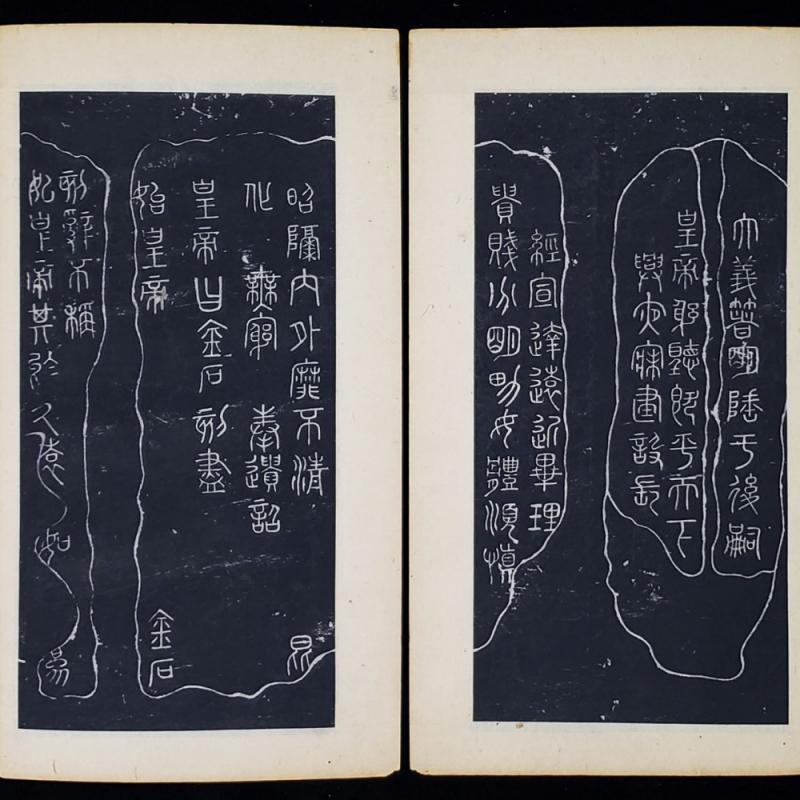 大義箸明陲于後嗣
皇帝躬聽既平天下
興夜寐建設長
經宣達遠近畢理
貴賤分明男女體順慎
昭隔內外靡不清 昆
化 無窮 奉遺詔
皇帝曰金石刻盡
始皇帝 金石
刻辭不稱
始皇帝其於久遠也如